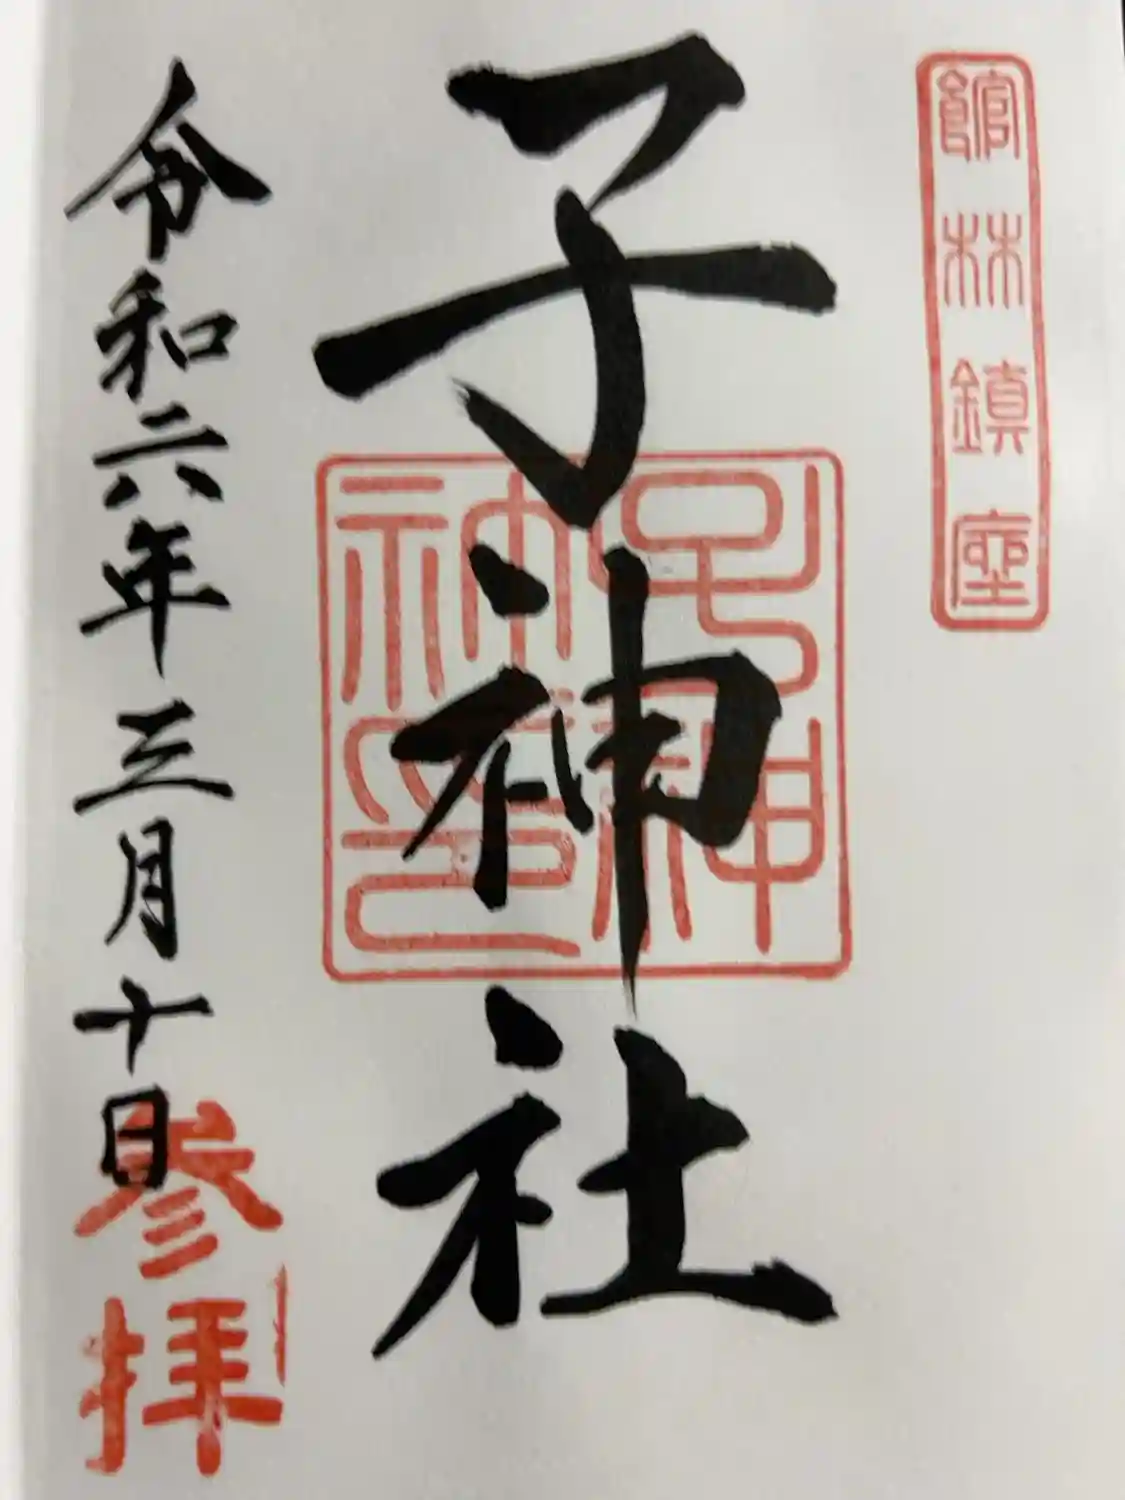 館林鎮座
子神社
子神神印
令和六年三月十日
参拝